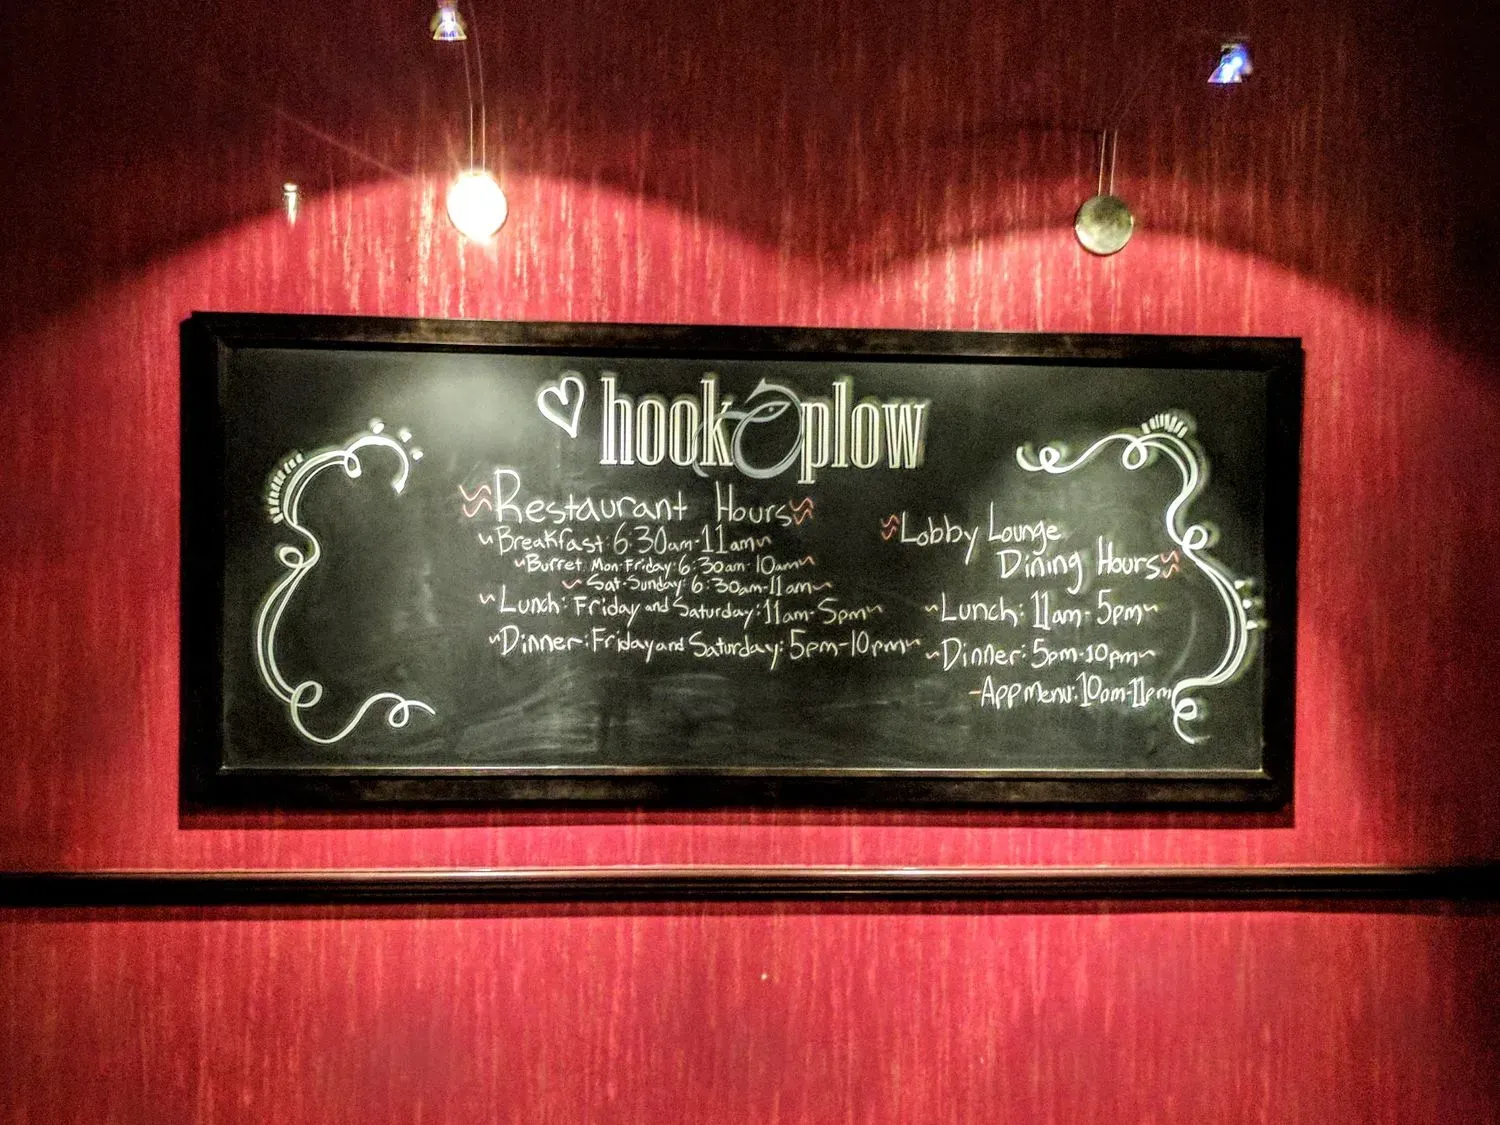 hook & plow
Restaurant Hours
~Breakfast: 6:30am-11am~
~Buffet: Mon-Friday: 6:30am-10am~
~Sat-Sunday: 6:30am-11am~
~Lunch: Friday and Saturday: 11am-5pm~
~Dinner: Friday and Saturday: 5pm-10pm~
Lobby Lounge
Dining Hours
~Lunch: 11am-5pm~
~Dinner: 5pm-10pm~
~App menu: 10am-11pm